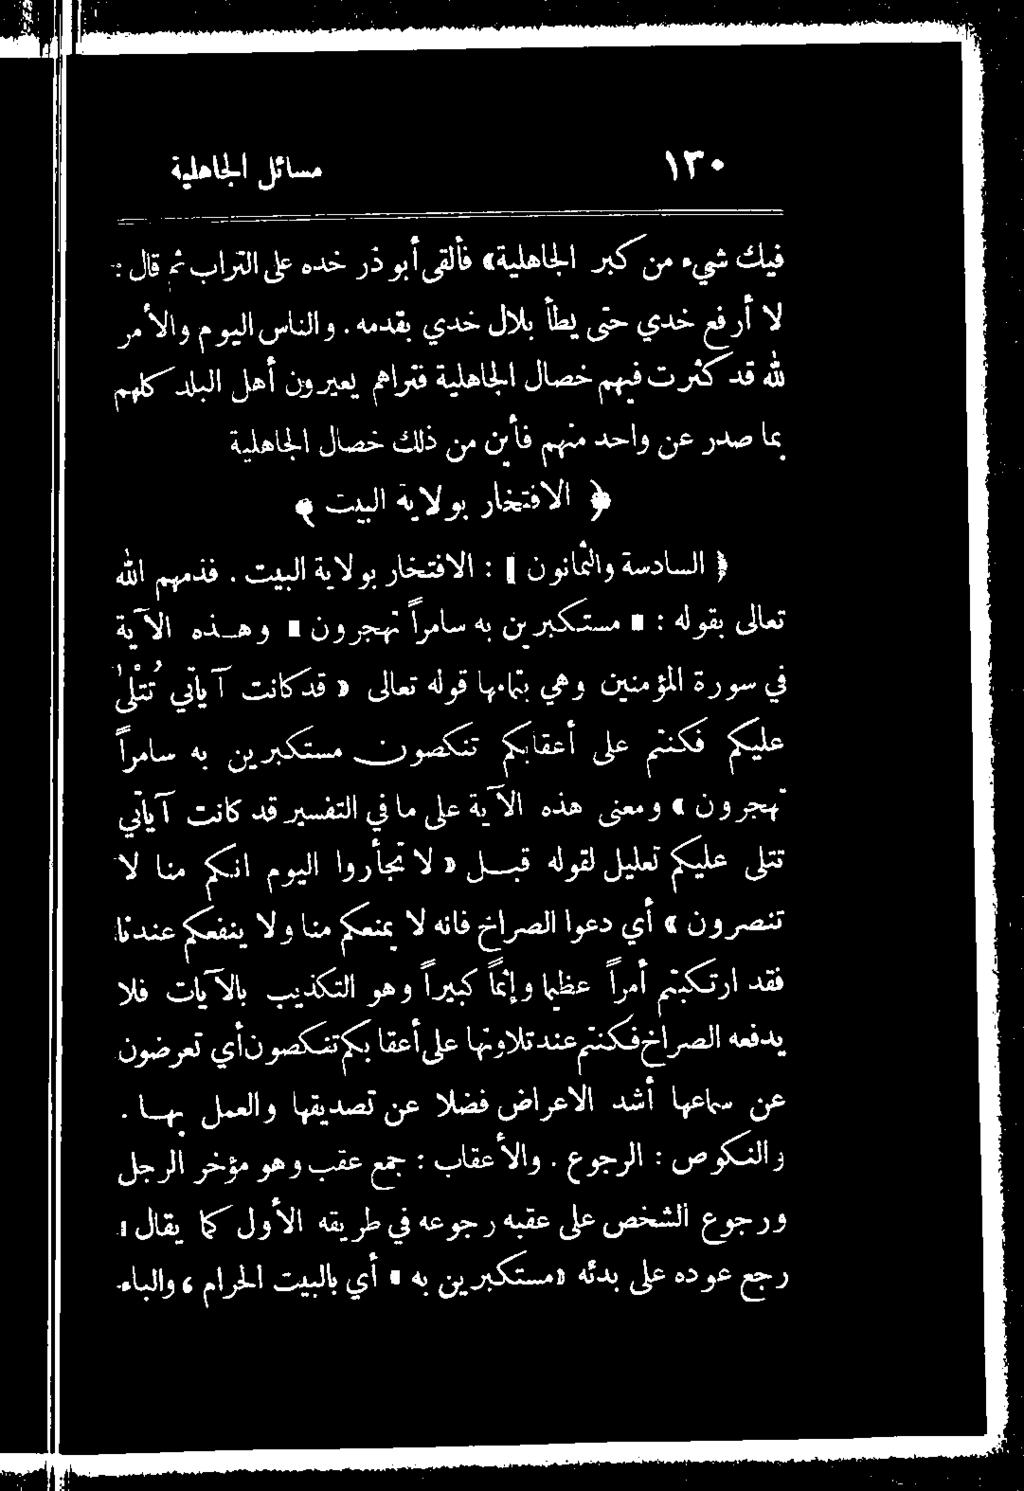 ١٣٠ مسائل الجاهلية
فيك شيء من كبر الجاهلية» فألقى أبو ذر خده على التراب ثم قال :
لا أرفع خدي حتى يطأ بلال خدي بقدمه. والناس اليوم والأمر
لله قد كثرت فيهم خصال الجاهلية فتراهم يعيرون أهل البلد كلهم
بما صدر عن واحد منهم فأين من ذلك خصال الجاهلية
﴿ الافتخار بولاية البيت ﴾
﴿ السادسة والثمانون ﴾ : الافتخار بولاية البيت. فذمهم الله
تعالى بقوله : « مستكبرين به سامراً تهجرون » وهـذه الآية
في سورة المؤمنين وهي بتمامها قوله تعالى « قد كانت آياتي تُتْلَىٰ
عليكم فكنتم على أعقابكم تنكصون مستكبرين به سامراً
تهجرون » ومعنى هذه الآية على ما في التفسير قد كانت آياتي
تتلى عليكم تعليل لقوله قبـل « لا تجأروا اليوم انكم منا لا
تنصرون » أي دعوا الصراخ فانه لا يمنعكم منا ولا ينفعكم عندنا
فقد ارتكبتم أمراً عظيما وإثماً كبيراً وهو التكذيب بالآيات فلا
يدفعه الصراخ فكنتم عند تلاوتها على أعقابكم تنكصون أي تعرضون
عن سماعها أشد الاعراض فضلا عن تصديقها والعمل بهـا .
والنكوص : الرجوع. والأعقاب : جمع عقب وهو مؤخر الرجل
ورجوع الشخص على عقبه رجوعه في طريقه الأول كما يقال :
رجع عوده على بدئه «مستكبرين به » أي بالبيت الحرام ، والباء